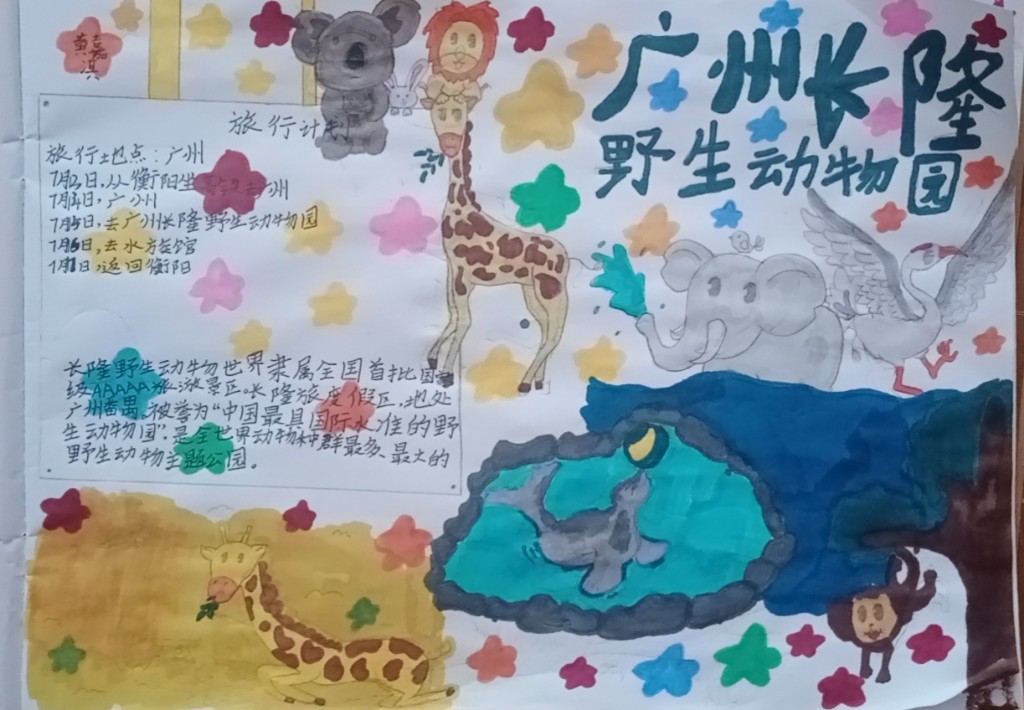 黄嘉淇
广州长隆
野生动物园
旅行计划
旅行地点：广州
7月2日，从衡阳坐广州
7月4日，广州
7月5日，去广州长隆野生动物园
7月6日，去水族馆
7月8日，返回衡阳
长隆野生动物世界隶属全国首批国家
级AAAAA旅游景区。长隆旅度假区，地处
广州番禺。被誉为“中国最具国际水准的野
生动物园”，是全世界动物种群最多、最大的
野生动物主题公园。